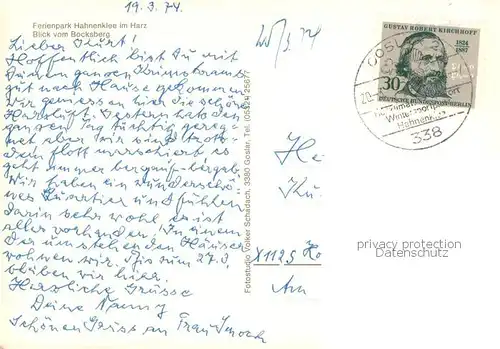 19.3.74
Ferienpark Hahnenklee im Harz
Blick vom Bocksberg
Lieber Kurt!
Hoffentlich bist Du mit
Deinem ganzen
gut nach Hause gekommen
Wir geniessen hier die schöne
Harzluft. Gestern hat es den
ganzen Tag tüchtig gereg-
net aber wir sind trotz-
dem flott marschiert es
geht immer bergauf-bergab.
Wir haben ein wunderschö-
nes Quartier und fühlen
darin sehr wohl es ist
alles vorhanden. In einem
der umstehenden Häuser
wohnen wir. Bis zum 27.3.
bleiben wir hier.
Herzliche Grüsse
Deine
Schönen Gruss an Frau
Fotostudio Volker Schadach, 3380 Goslar, Tel. (05321) 25677
25/3 74
GUSTAV ROBERT KIRCHHOFF
1824
1887
30
DEUTSCHE BUNDESPOST BERLIN
GOSL
20.
Wintersport
Hahnenklee
338
He
Ku
X1125 Ho
Am
privacy protection
Datenschutz